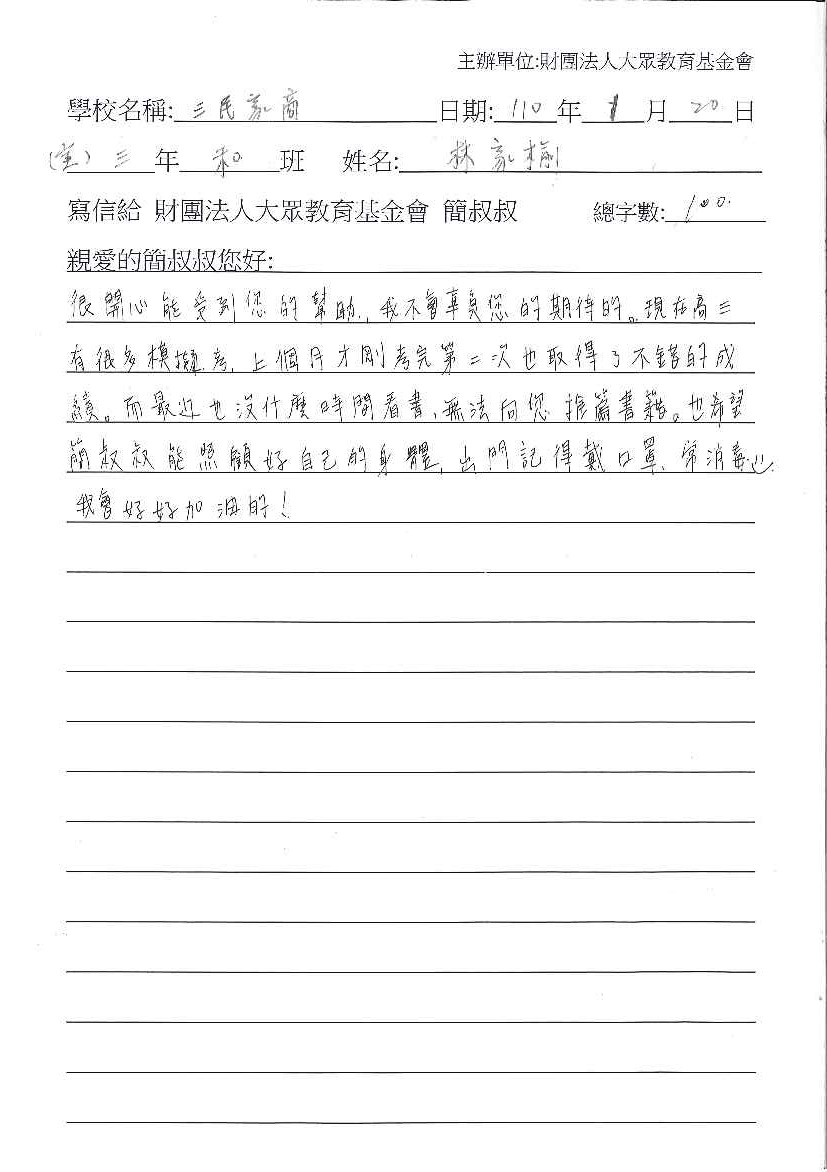 主辦單位:財團法人大眾教育基金會
學校名稱: 三民家商 日期: 110 年 1 月 20 日
(室) 三 年 和 班 姓名: 林家榆
寫信給 財團法人大眾教育基金會 簡叔叔 總字數: 100.
親愛的簡叔叔您好:
很開心能受到您的幫助,我不會辜負您的期待的。現在高三
有很多模擬考,上個月才剛考完第二次也取得了不錯的成
績。而最近也沒什麼時間看書,無法向您推薦書籍。也希望
簡叔叔能照顧好自己的身體,出門記得戴口罩、常消毒
我會好好加油的!